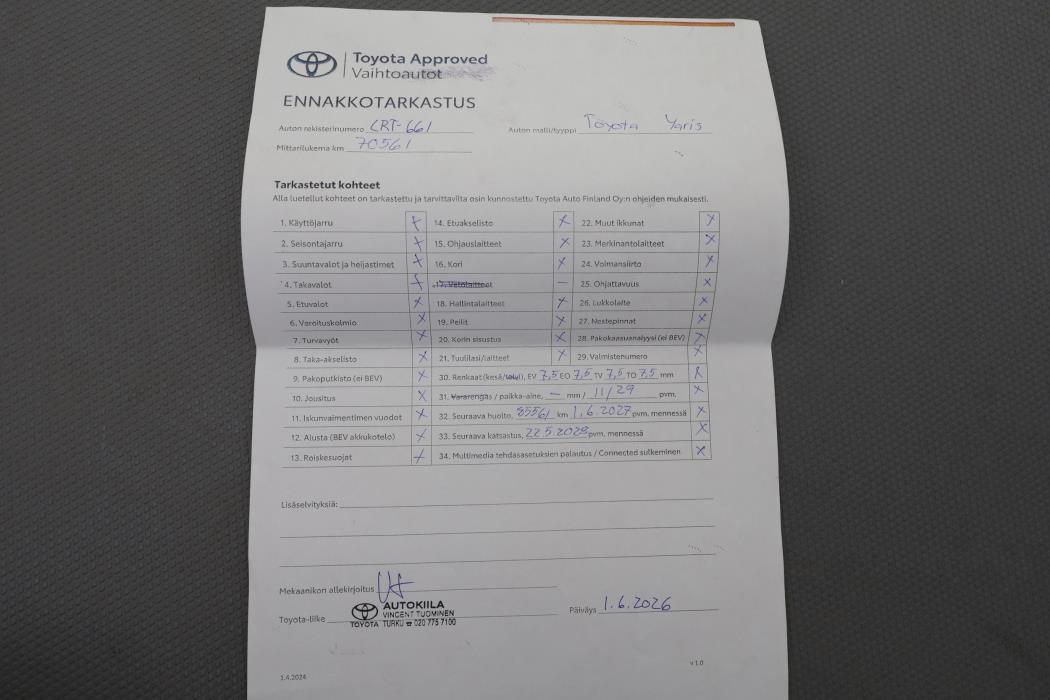 Toyota Approved
Vaihtoautot
ENNAKKOTARKASTUS
Auton rekisterinumero CRT-661 Auton malli/tyyppi Toyota Yaris
Mittarilukema km 70561
Tarkastetut kohteet
Alla luetellut kohteet on tarkastettu ja tarvittavilta osin kunnostettu Toyota Auto Finland Oy:n ohjeiden mukaisesti.
1. Käyttöjarru X 14. Etuakselisto X 22. Muut ikkunat X
2. Seisontajarru X 15. Ohjauslaitteet X 23. Merkinantolaitteet X
3. Suuntavalot ja heijastimet X 16. Kori X 24. Voimansiirto X
4. Takavalot X 17. Vetolaitteet – 25. Ohjattavuus X
5. Etuvalot X 18. Hallintalaitteet X 26. Lukkolaite X
6. Varoituskolmio X 19. Peilit X 27. Nestepinnat X
7. Turvavyöt X 20. Korin sisustus X 28. Pakokaasuanalyysi (ei BEV) X
8. Taka-akselisto X 21. Tuulilasi/laitteet X 29. Valmistenumero X
9. Pakoputkisto (ei BEV) X 30. Renkaat (kesä/talvi), EV 7,5 EO 7,5 TV 7,5 TO 7,5 mm X
10. Jousitus X 31. Vararengas / paikka-aine, – mm / 11/29 pvm, X
11. Iskunvaimentimen vuodot X 32. Seuraava huolto, 85561 km 1.6.2027 pvm. mennessä X
12. Alusta (BEV akkukotelo) X 33. Seuraava katsastus, 22.5.2028 pvm. mennessä X
13. Roiskesuojat X 34. Multimedia tehdasasetuksien palautus / Connected sulkeminen X
Lisäselvityksiä:
Mekaanikon allekirjoitus
Toyota-liike AUTOKIILA Päiväys 1.6.2026
VINCENT TUOMINEN
TOYOTA TURKU ☎ 020 775 7100
1.4.2024 v 1.0